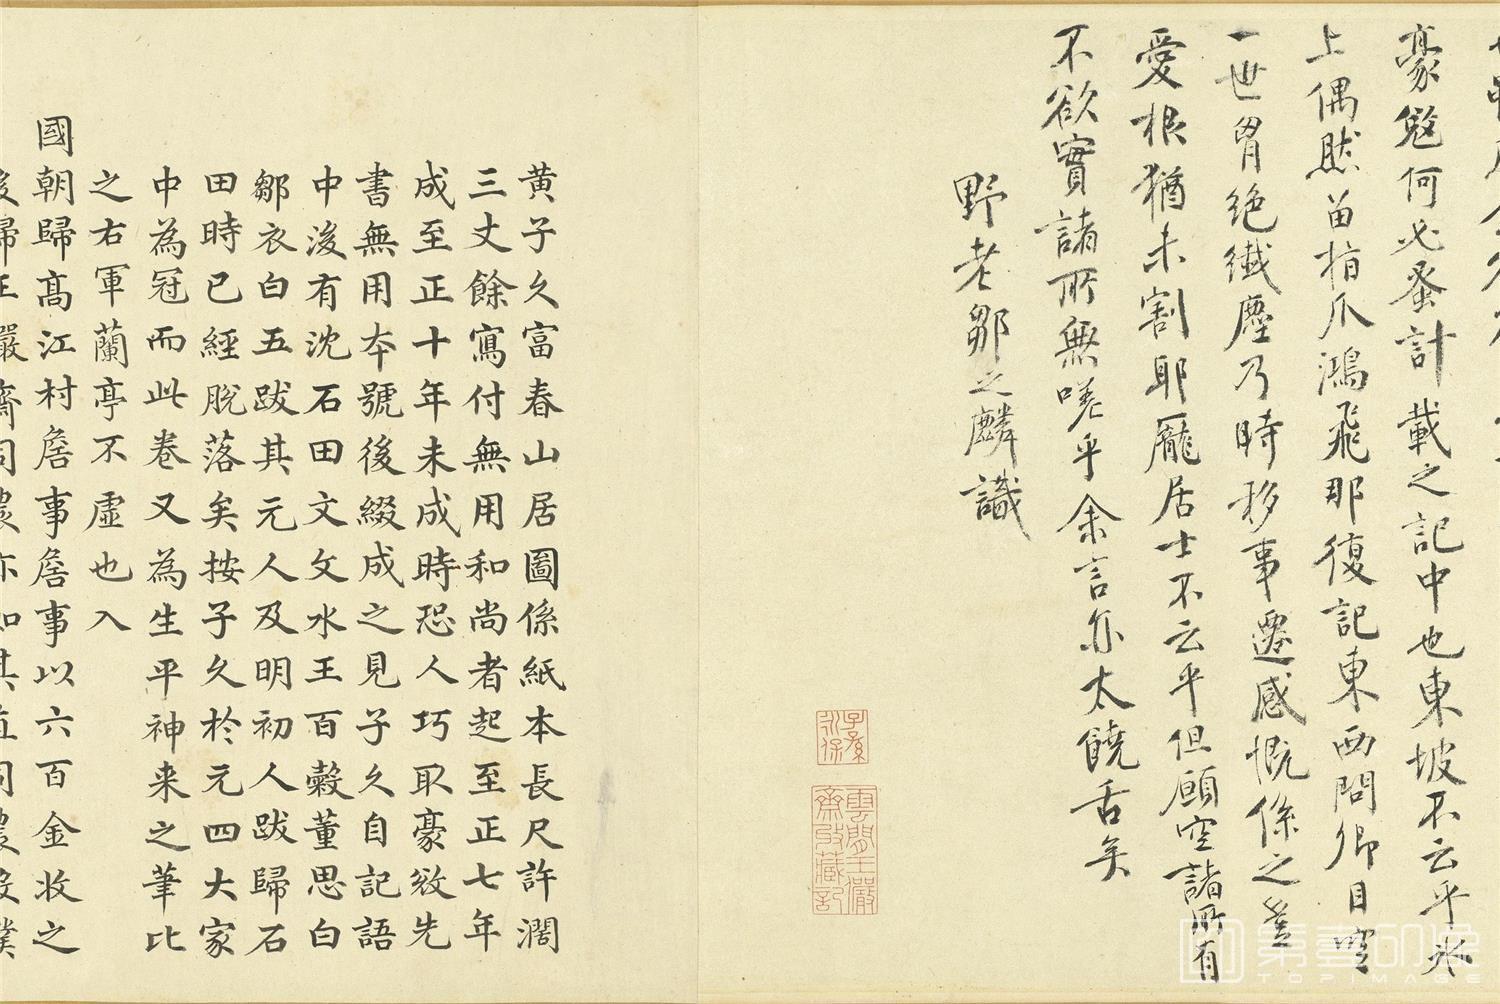 豪勉何必蚤計載之記中也東坡不云乎泥
上偶然留指爪鴻飛那復記東西問卿目空
一世胷絶纎塵乃時移事遷感慨係之豈
愛根猶未割耶龐居士不云乎但願空諸所有
不欲實諸所無嗟乎余言亦太饒舌矣
野老鄒之麟識
子孫永保
雲間王儼齋收藏記
黄子久富春山居圖係紙本長尺許濶
三丈餘寫付無用和尚者起至正七年
成至正十年未成時恐人巧取豪敓先
書無用夲號後綴成之見子久自記語
中後有沈石田文文水王百穀董思白
鄒衣白五跋其元人及明初人跋歸石
田時已經脱落矣按子久於元四大家
中為冠而此卷又為生平神来之筆比
之右軍蘭亭不虛也入
國朝歸髙江村詹事詹事以六百金收之
後歸王儼齋司農亦如其直司農殁僕
第壹印像
TOPIMAGE